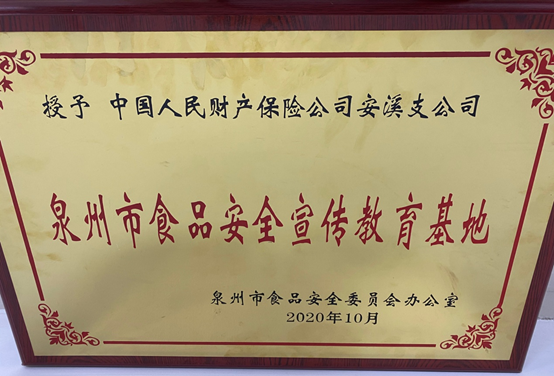 授予 中国人民财产保险公司安溪支公司
泉州市食品安全宣传教育基地
泉州市食品安全委员会办公室
2020年10月